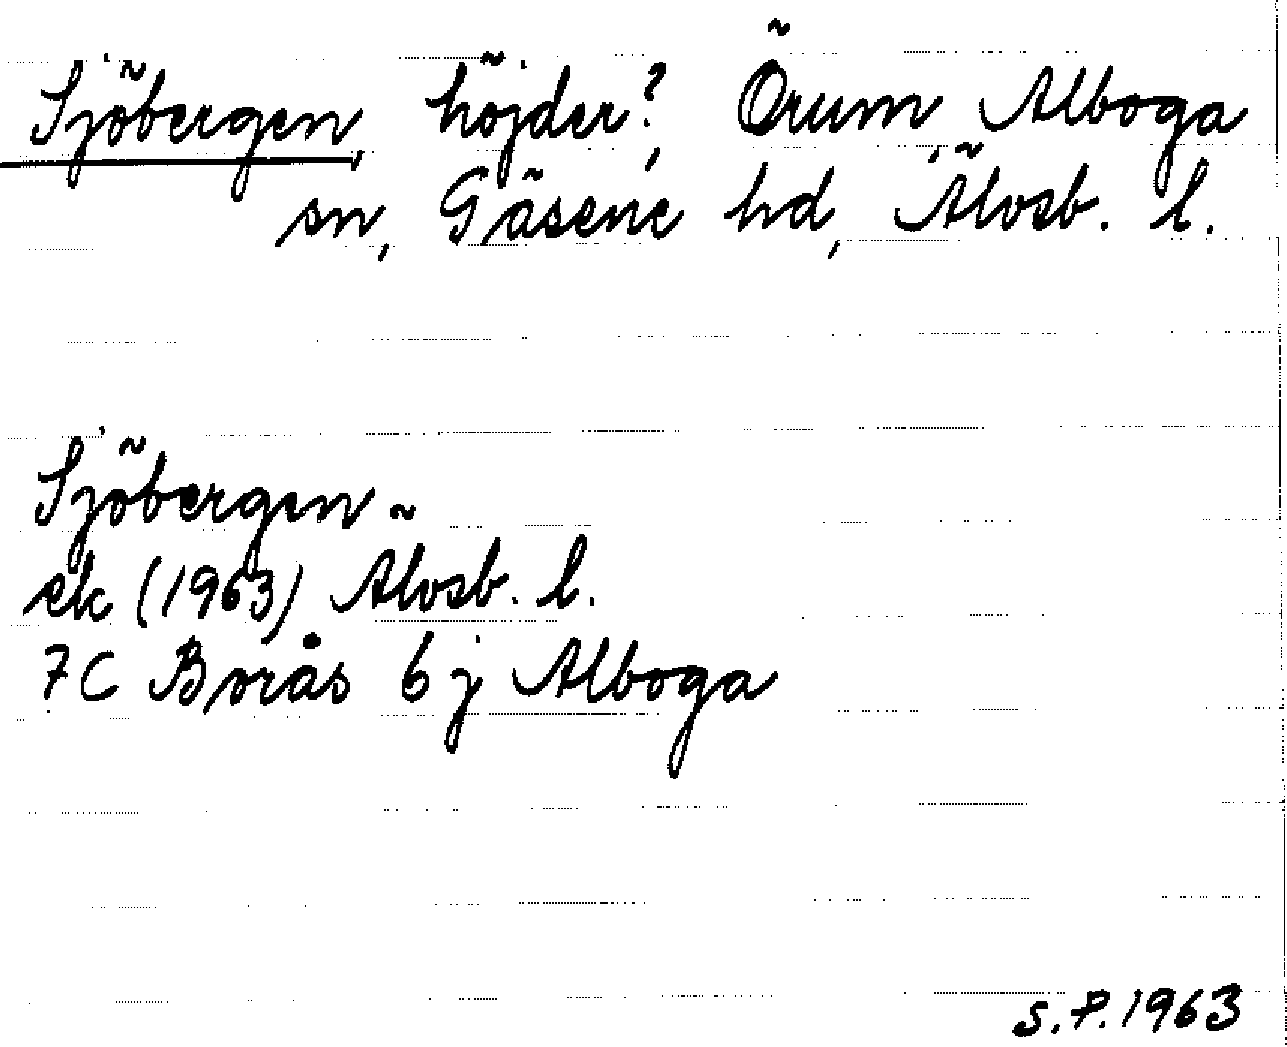 Sjöbergen, höjder?, Örum, Alboga
sn, Gäsene hd, Älvsb. l.
Sjöbergen
ek (1963) Älvsb. l.
7C Borås 6j Alboga
S.P. 1963